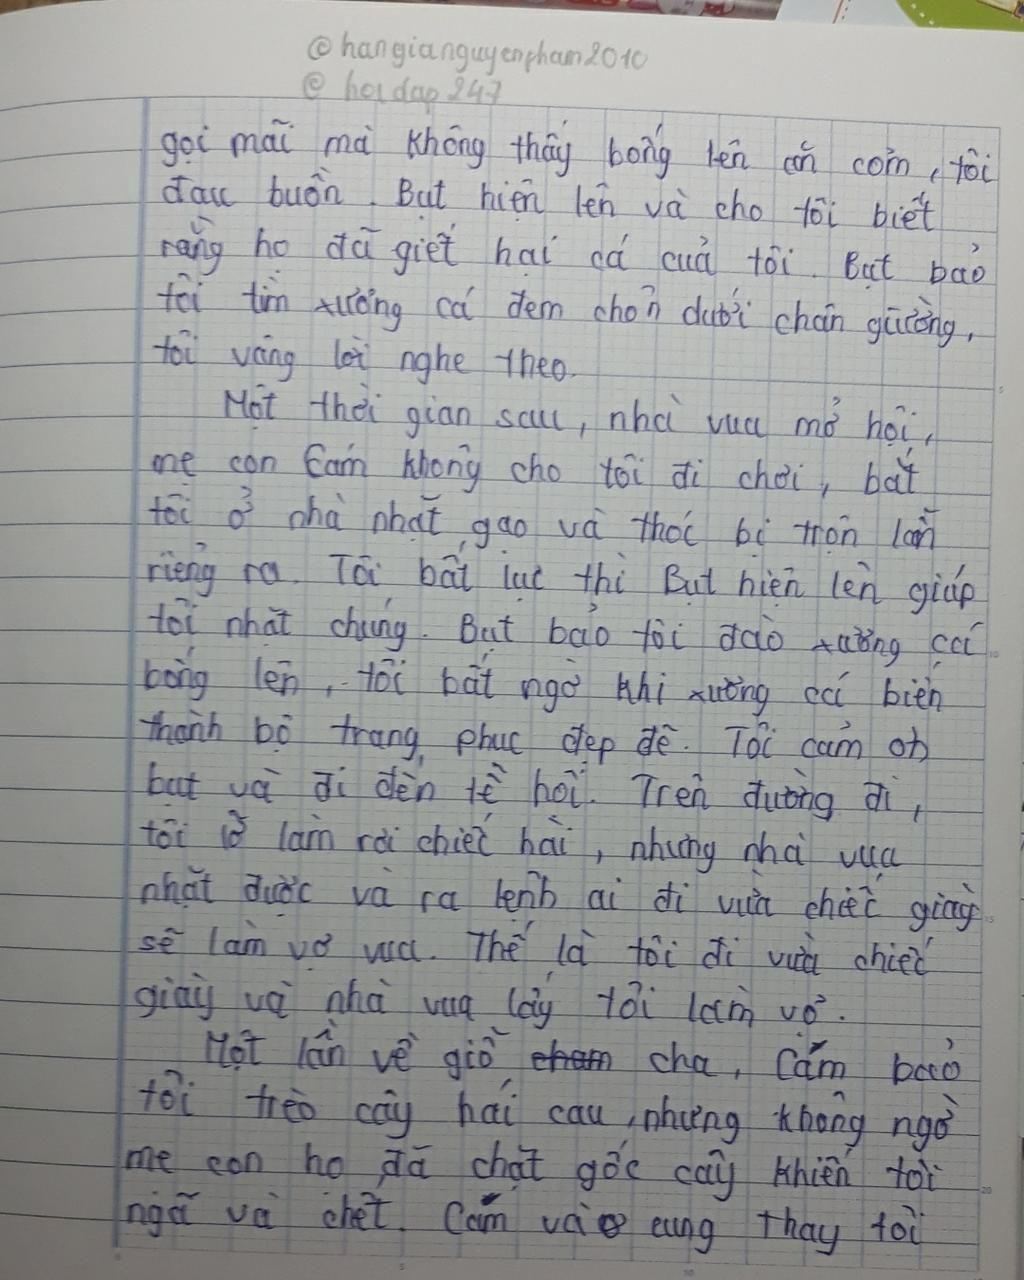 @hangianguyenpham2010
@hoidap247
gọi mãi mà không thấy bống lên ăn cơm, tôi
đau buồn. Bụt hiện lên và cho tôi biết
rằng họ đã giết hại cá của tôi. Bụt bảo
tôi tìm xương cá đem chôn dưới chân giường,
tôi vâng lời nghe theo.
Một thời gian sau, nhà vua mở hội,
mẹ con Cám không cho tôi đi chơi, bắt
tôi ở nhà nhặt gạo và thóc bị trộn lẫn
riêng ra. Tôi bất lực thì Bụt hiện lên giúp
tôi nhặt chúng. Bụt bảo tôi đào xương cá
bống lên, tôi bất ngờ khi xương cá biến
thành bộ trang phục đẹp đẽ. Tôi cảm ơn
bụt và đi đến lễ hội. Trên đường đi,
tôi lỡ làm rơi chiếc hài, nhưng nhà vua
nhặt được và ra lệnh ai đi vừa chiếc giày
sẽ làm vợ vua. Thế là tôi đi vừa chiếc
giày và nhà vua lấy tôi làm vợ.
Một lần về giỗ cha, Cám bảo
tôi trèo cây hái cau, nhưng không ngờ
mẹ con họ đã chặt gốc cây khiến tôi
ngã và chết. Cám vào cung thay tôi